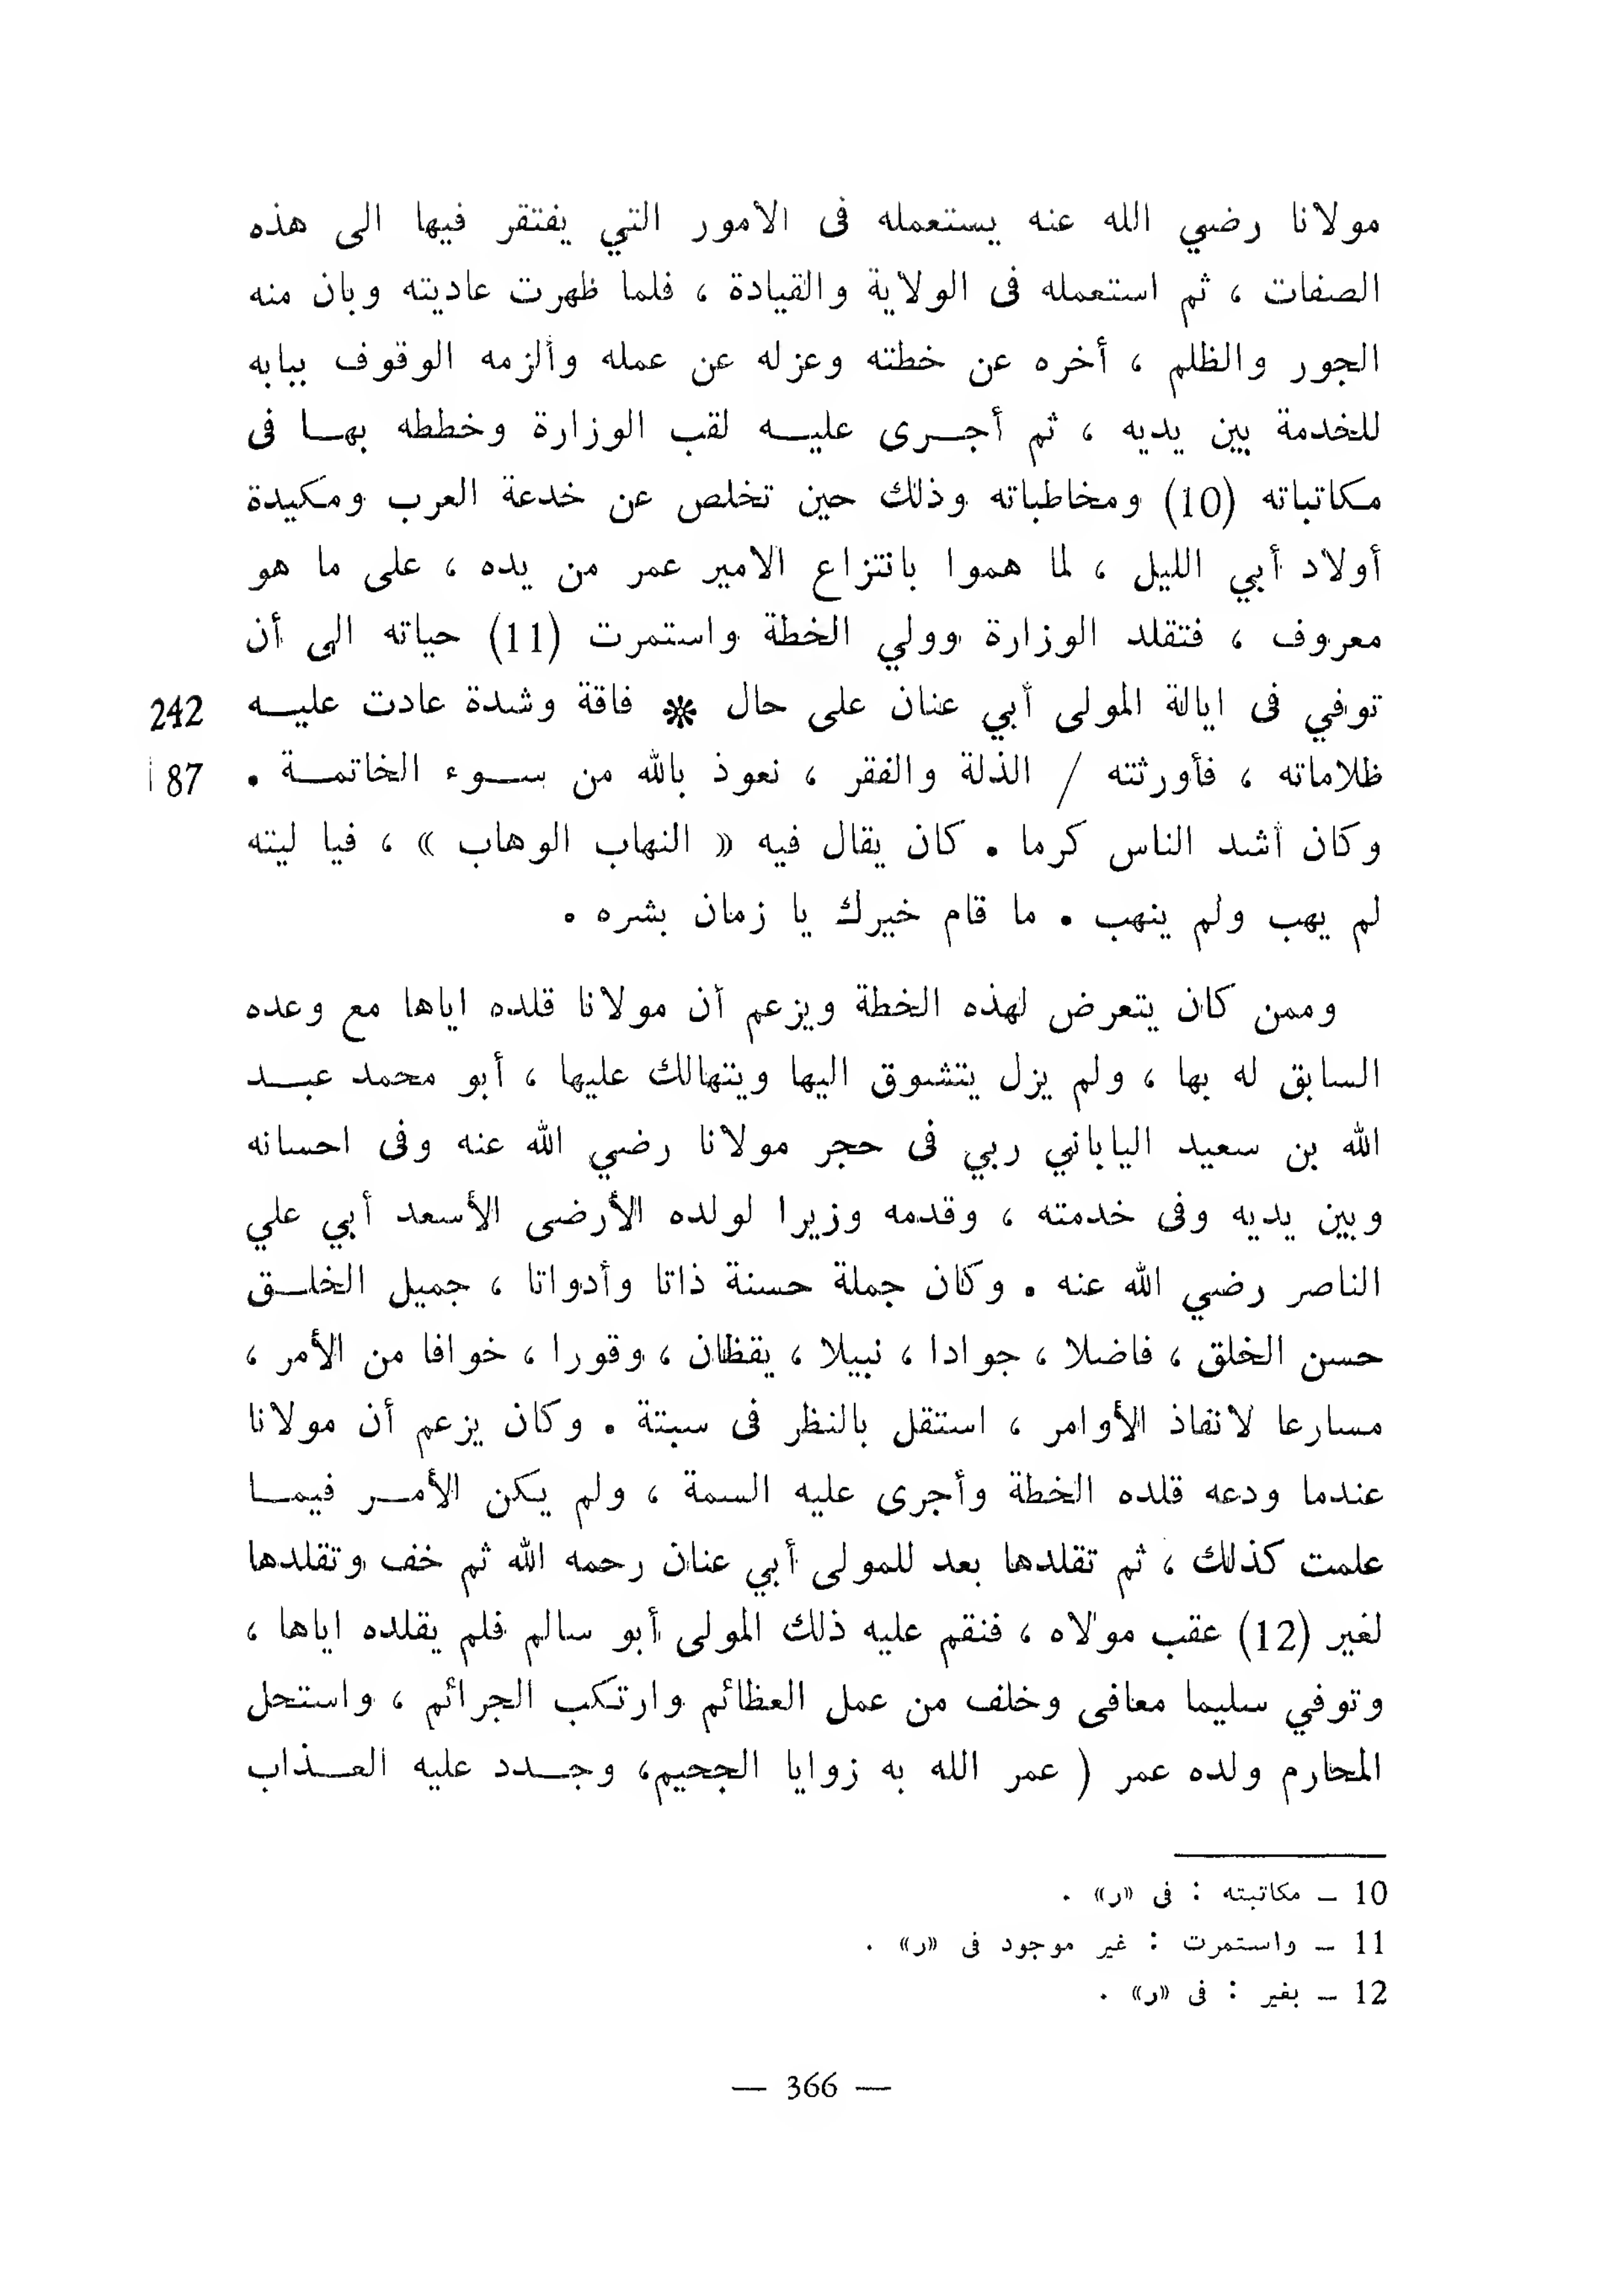 مولانا رضي الله عنه يستعمله فى الامور التي يفتقر فيها الى هذه
الصفات ، ثم استعمله فى الولاية والقيادة ، فلما ظهرت عاديته وبان منه
الجور والظلم ، أخره عن خطته وعزله عن عمله وألزمه الوقوف ببابه
للخدمة بين يديه ، ثم أجرى عليه لقب الوزارة وخططه بها فى
مكاتباته (10) ومخاطباته وذلك حين تخلص عن خدعة العرب ومكيدة
أولاد أبي الليل ، لما هموا بانتزاع الامير عمر من يده ، على ما هو
معروف ، فتقلد الوزارة وولي الخطة واستمرت (11) حياته الى أن
توفي فى ايالة المولى أبي عنان على حال * فاقة وشدة عادت عليه 242
ظلاماته ، فأورثته / الذلة والفقر ، نعوذ بالله من سوء الخاتمة . 87 أ
وكان أشد الناس كرما . كان يقال فيه « النهاب الوهاب » ، فيا ليته
لم يهب ولم ينهب . ما قام خيرك يا زمان بشره .
وممن كان يتعرض لهذه الخطة ويزعم أن مولانا قلده اياها مع وعده
السابق له بها ، ولم يزل يتشوق اليها ويتهالك عليها ، أبو محمد عبد
الله بن سعيد الياباني ربي فى حجر مولانا رضي الله عنه وفى احسانه
وبين يديه وفى خدمته ، وقدمه وزيرا لولده الأرضى الأسعد أبي علي
الناصر رضي الله عنه . وكان جملة حسنة ذاتا وأدواتا ، جميل الخلق
حسن الخلق ، فاضلا ، جوادا ، نبيلا ، يقظان ، وقورا ، خوافا من الأمر ،
مسارعا لانفاذ الأوامر ، استقل بالنظر فى سبتة . وكان يزعم أن مولانا
عندما ودعه قلده الخطة وأجرى عليه السمة ، ولم يكن الأمر فيما
علمت كذلك ، ثم تقلدها بعد للمولى أبي عنان رحمه الله ثم خف وتقلدها
لغير (12) عقب مولاه ، فنقم عليه ذلك المولى أبو سالم فلم يقلده اياها ،
وتوفي سليما معافى وخلف من عمل العظائم وارتكب الجرائم ، واستحل
المحارم ولده عمر ( عمر الله به زوايا الجحيم، وجدد عليه العذاب
10 – مكاتبته : فى «ر» .
11 – واستمرت : غير موجود فى «ر» .
12 – بغير : فى «ر» .
— 366 —